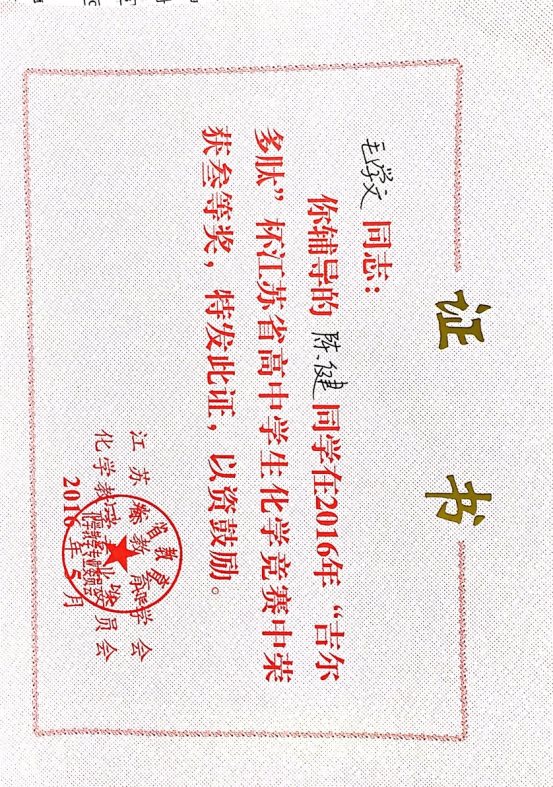 证 书
毛学文 同志：
你辅导的 陈健 同学在2016年“吉尔
多肽”杯江苏省高中学生化学竞赛中荣
获叁等奖，特发此证，以资鼓励。
江苏省教育学会
化学教学专业委员会
2016年5月